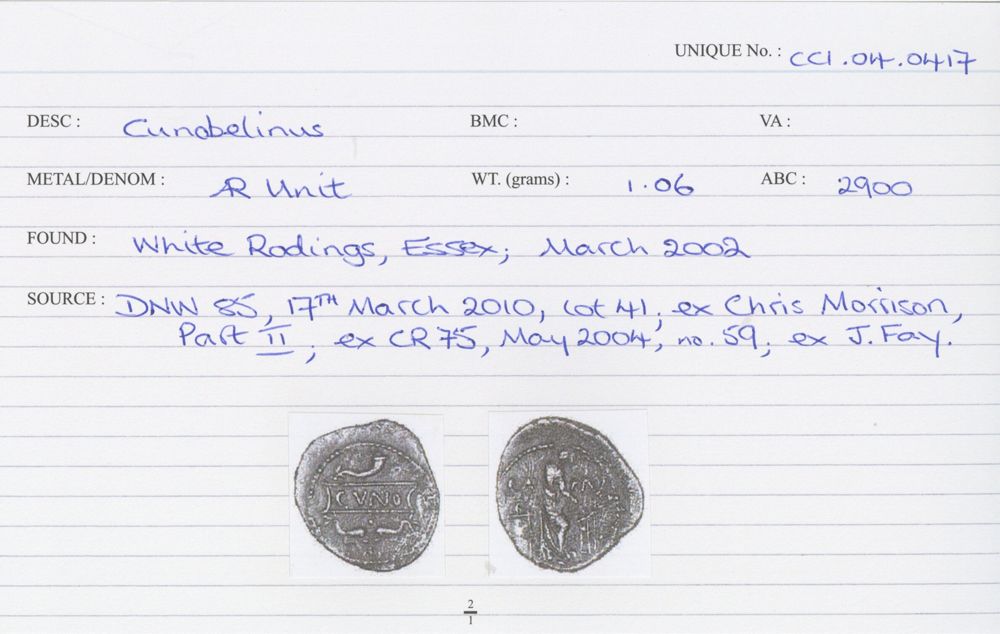 UNIQUE No. : CCI.04.0417
DESC : Cunobelinus BMC : VA :
METAL/DENOM : AR Unit WT. (grams) : 1.06 ABC : 2900
FOUND : White Rodings, Essex; March 2002
SOURCE : DNW 85, 17TH March 2010, lot 41; ex Chris Morrison,
Part II; ex CR75, May 2004, no. 59; ex J. Fay.
CVNO
2
1